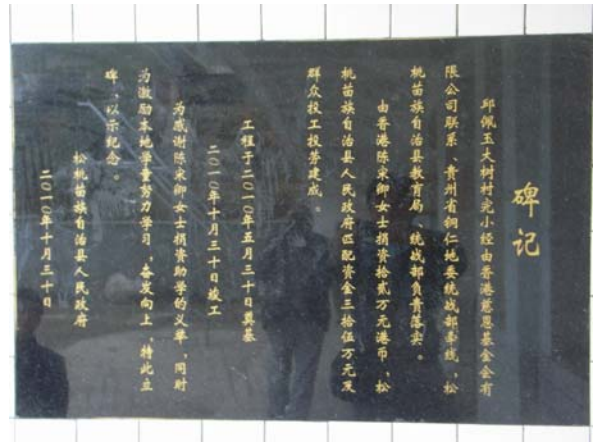 碑记
邱佩玉大树村完小经由香港慈恩基金会有
限公司联系、贵州省铜仁地委统战部牵线,松
桃苗族自治县教育局、统战部负责落实。
由香港陈宋卿女士捐资拾贰万元港币,松
桃苗族自治县人民政府匹配资金三拾伍万元及
群众投工投劳建成。
工程于二〇一〇年五月三十日奠基
二〇一〇年十月三十日竣工
为感谢陈宋卿女士捐资助学的义举,同时
为激励本地学童努力学习,奋发向上,特此立
碑,以示纪念。
松桃苗族自治县人民政府
二〇一〇年十月三十日